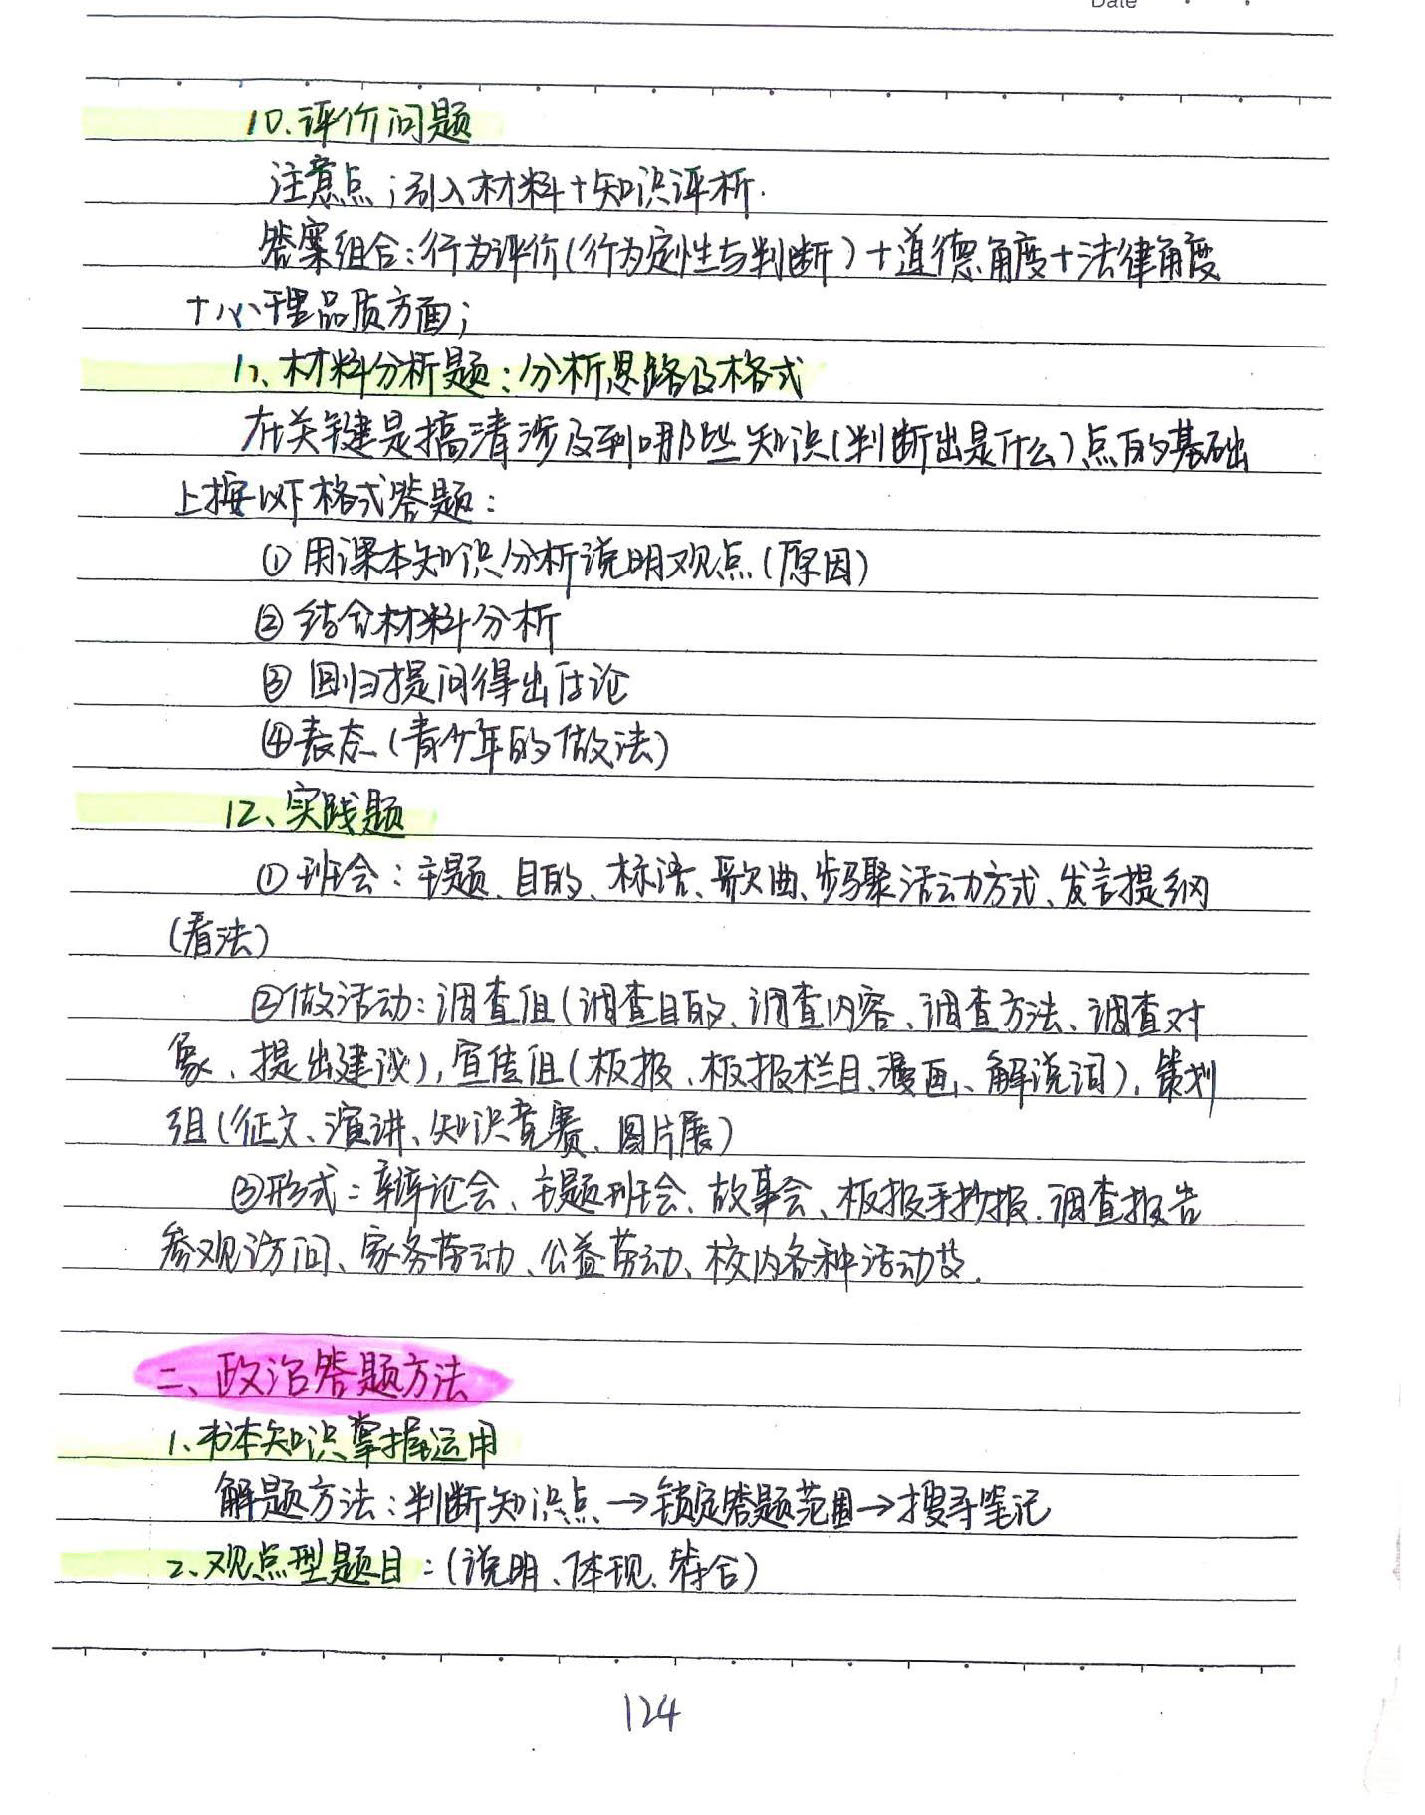 Date
10.评价问题
注意点:引入材料+知识评析.
答案组合:行为评价(行为定性与判断)+道德角度+法律角度
+心理品质方面;
11、材料分析题:分析思路及格式
在关键是搞清涉及到哪些知识(判断出是什么)点的基础
上按以下格式答题:
①用课本知识分析说明观点(原因)
②结合材料分析
③回归提问得出结论
④表态(青少年的做法)
12、实践题
①班会:主题、目的、标语、歌曲、步骤活动方式、发言提纲
(看法)
②做活动:调查组(调查目的、调查内容、调查方法、调查对
象、提出建议),宣传组(板报、板报栏目、漫画、解说词),策划
组(征文、演讲、知识竞赛、图片展)
③形式:辩论会、主题班会、故事会、板报手抄报.调查报告
参观访问、家务劳动、公益劳动、校内各种活动等.
二、政治答题方法
1、书本知识掌握运用
解题方法:判断知识点→锁定答题范围→搜寻笔记
2、观点型题目:(说明、体现、符合)
124